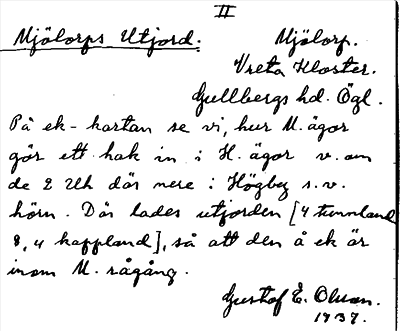 II
Mjölorps Utjord.
Mjölorp.
Vreta Kloster.
Gullbergs hd. Ögl.
På ek-kartan se vi, hur M. ägor
gör ett hak in i H. ägor v. om
de 2 Uh där nere i Högby s.v.
hörn. Där lades utjorden [4 tunnland
8,4 kappland], så att den å ek är
inom M. rågång.
Gustaf E. Olsson.
1937.